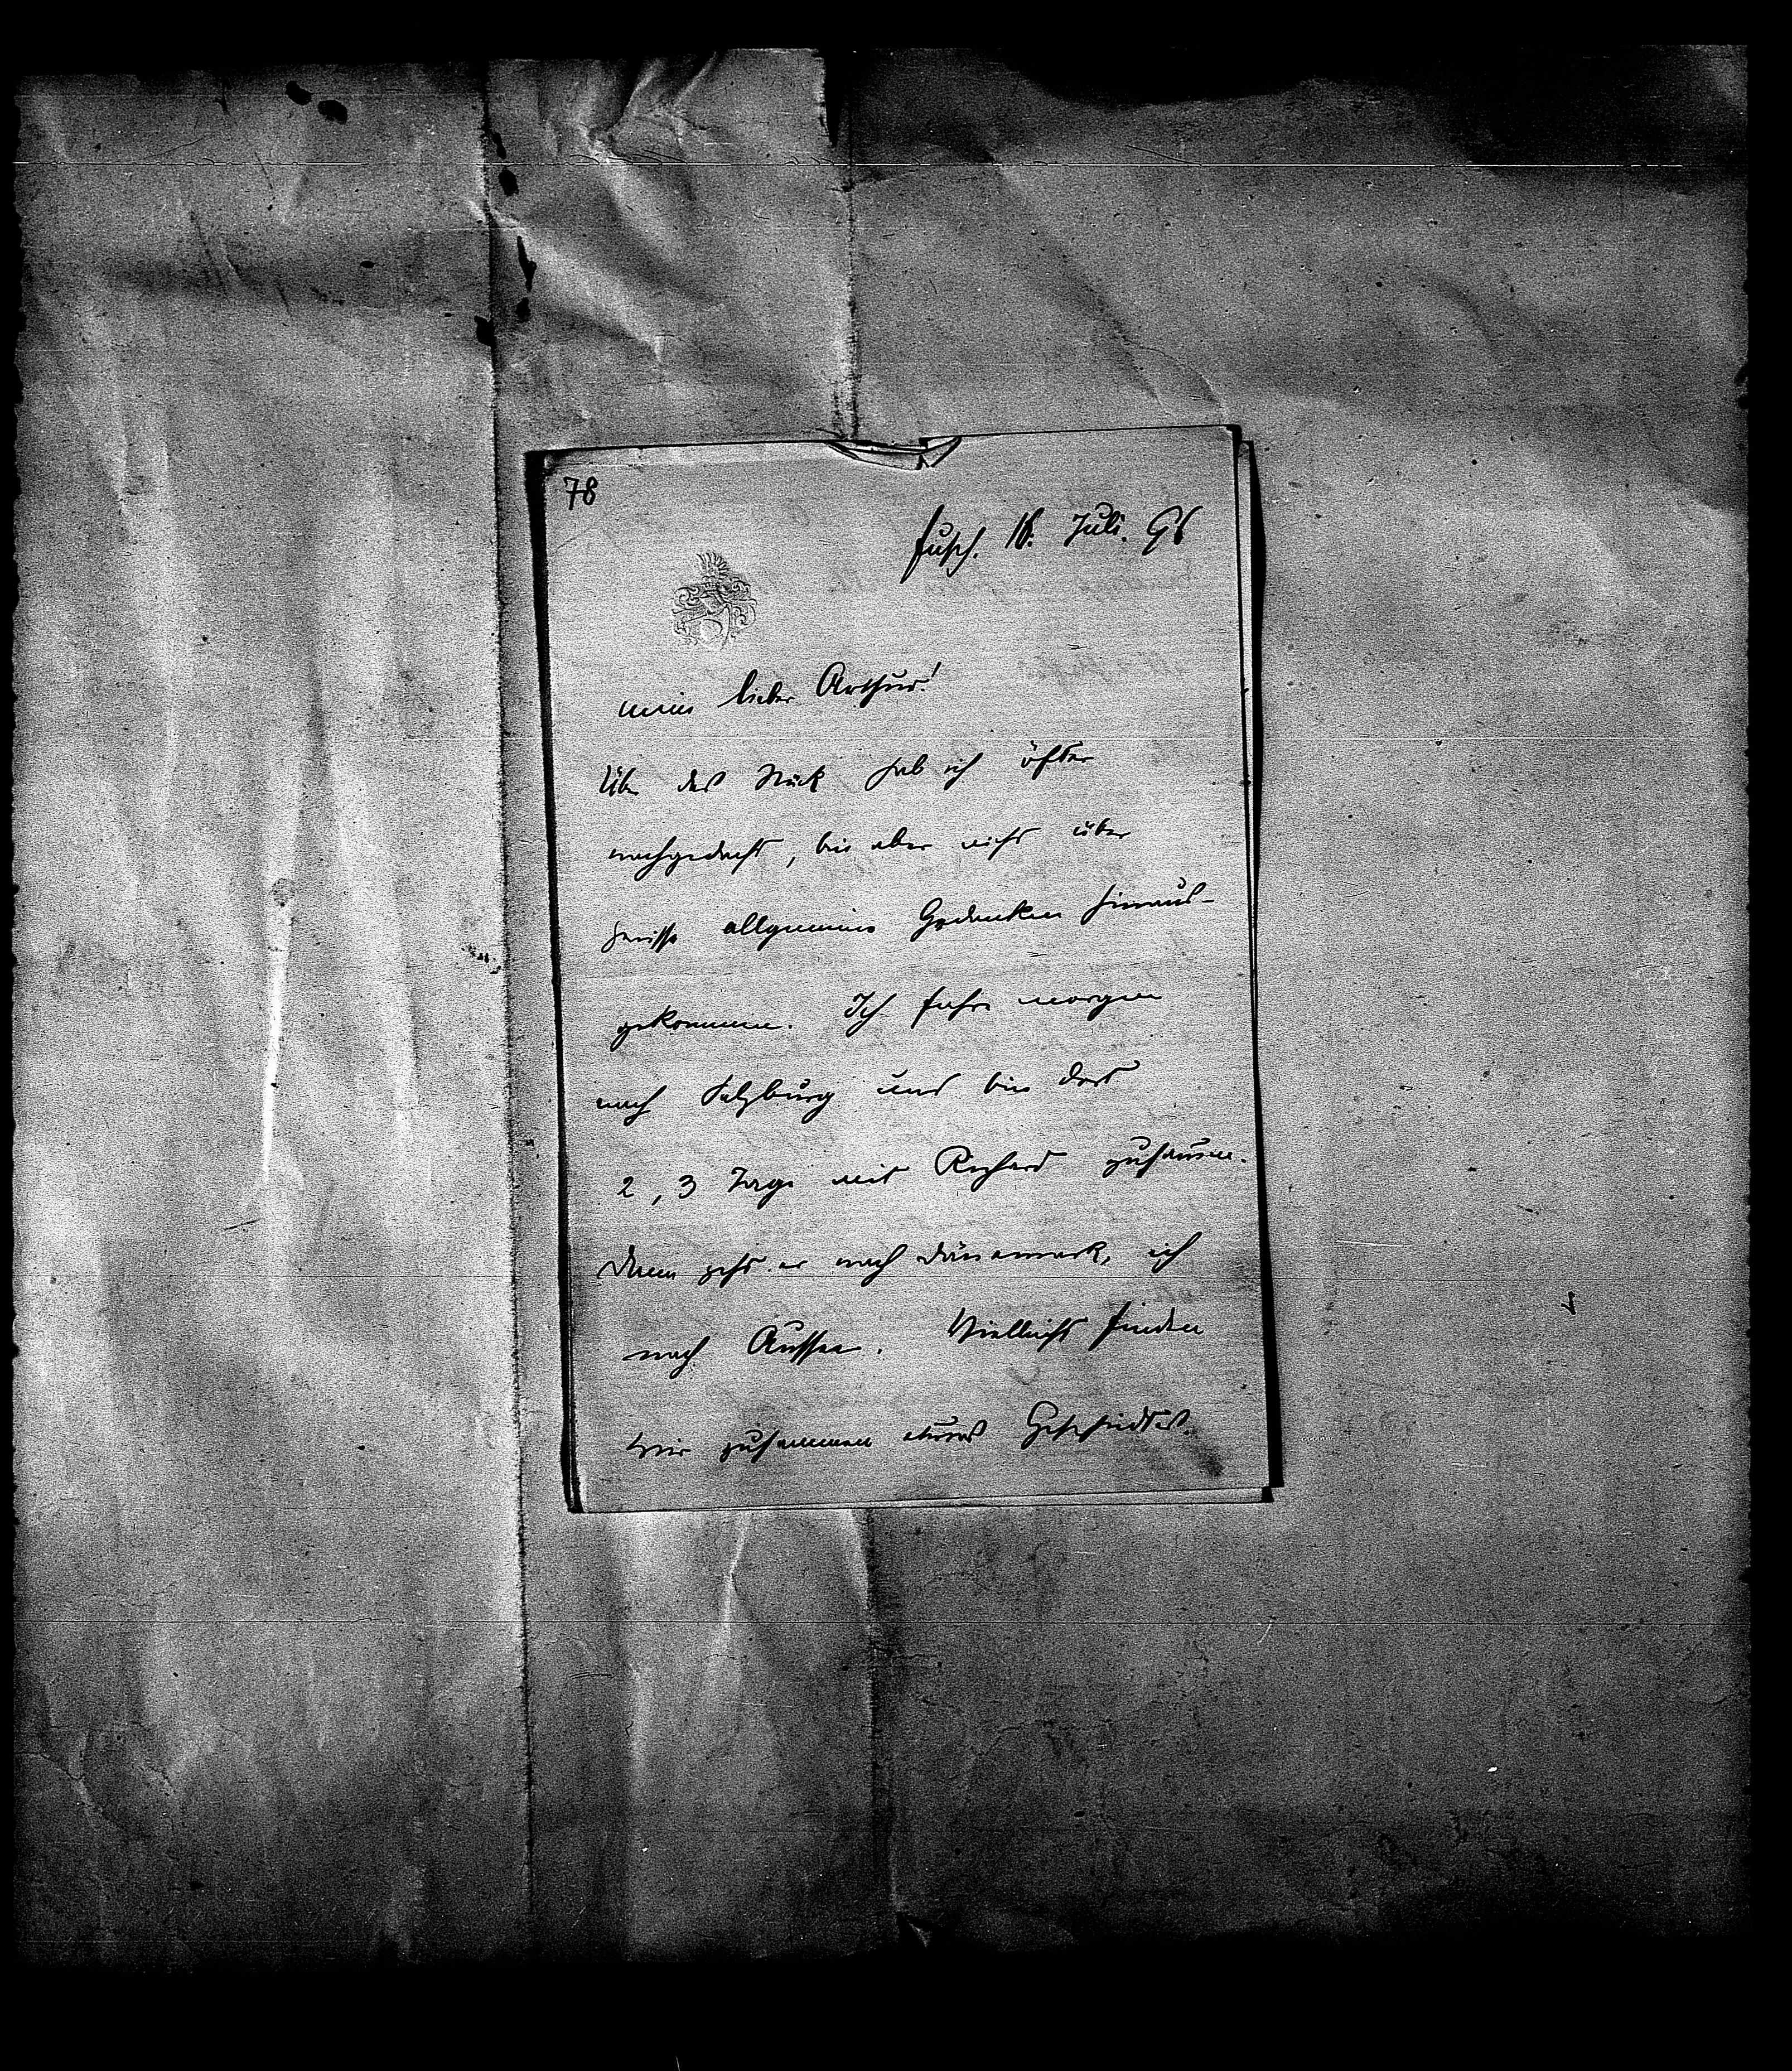 78
Fusch. 16. Juli. 96
mein lieber Arthur!
Über das Stück hab ich öfter
nachgedacht, bin aber nicht über
gewisse allgemeine Gedanken hinaus-
gekommen. Ich fahre morgen
nach Salzburg und bin dort
2, 3 Tage mit Richard zusammen.
Dann geht er nach Dänemark, ich
nach Aussee. Vielleicht finden
wir zusammen etwas Gescheidtes.